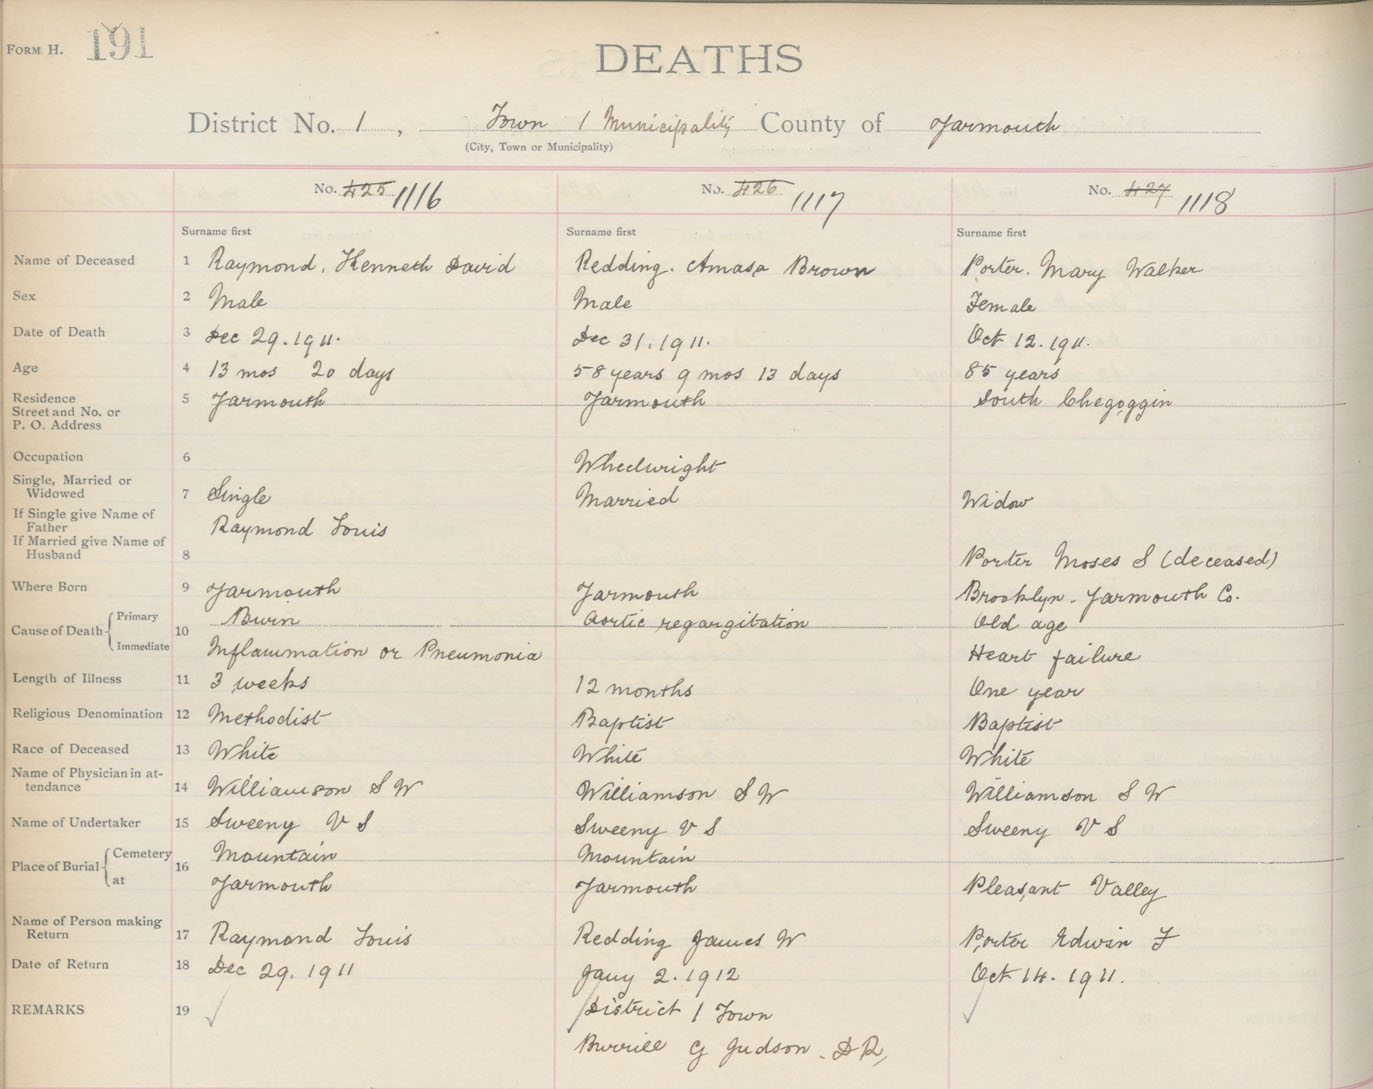 FORM H. 191
DEATHS
District No. 1, Town 1 Municipality County of Yarmouth
(City, Town or Municipality)
No. 425 1116 No. 426 1117 No. 427 1118
Surname first Surname first Surname first
Name of Deceased 1 Raymond. Kenneth David Redding. Amasa Brown Porter. Mary Walker
Sex 2 Male Male Female
Date of Death 3 Dec 29. 1911. Dec 31. 1911. Oct 12. 1911.
Age 4 13 mos 20 days 58 years 9 mos 13 days 85 years
Residence 5 Yarmouth Yarmouth South Chegoggin
Street and No. or
P. O. Address
Occupation 6 Wheelwright
Single, Married or
Widowed 7 Single Married Widow
If Single give Name of
Father Raymond Louis
If Married give Name of
Husband 8 Porter Moses S (deceased)
Where Born 9 Yarmouth Yarmouth Brooklyn. Yarmouth Co.
Cause of Death Primary 10 Burn Aortic regargitation Old age
Immediate Inflammation or Pneumonia Heart failure
Length of Illness 11 3 weeks 12 months One year
Religious Denomination 12 Methodist Baptist Baptist
Race of Deceased 13 White White White
Name of Physician in at-
tendance 14 Williamson S W Williamson S W Williamson S W
Name of Undertaker 15 Sweeny V S Sweeny V S Sweeny V S
Place of Burial Cemetery 16 Mountain Mountain
at Yarmouth Yarmouth Pleasant Valley
Name of Person making
Return 17 Raymond Louis Redding James W Porter Edwin F
Date of Return 18 Dec 29. 1911 Jany 2. 1912 Oct 14. 1911.
REMARKS 19 District 1 Town
Burrill G Judson. D R,